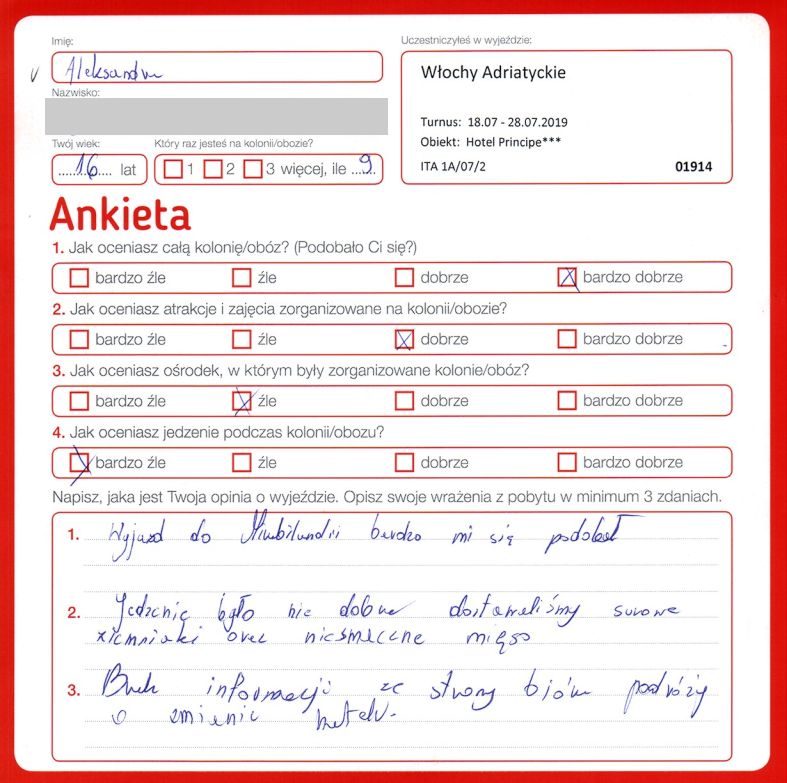 Imię:
Aleksandra
Nazwisko:
Twój wiek:
16 lat
Który raz jesteś na kolonii/obozie?
1 2 3 więcej, ile 9
Uczestniczyłeś w wyjeździe:
Włochy Adriatyckie
Turnus: 18.07 - 28.07.2019
Obiekt: Hotel Principe***
ITA 1A/07/2 01914
Ankieta
1. Jak oceniasz całą kolonię/obóz? (Podobało Ci się?)
bardzo źle źle dobrze bardzo dobrze
2. Jak oceniasz atrakcje i zajęcia zorganizowane na kolonii/obozie?
bardzo źle źle dobrze bardzo dobrze
3. Jak oceniasz ośrodek, w którym były zorganizowane kolonie/obóz?
bardzo źle źle dobrze bardzo dobrze
4. Jak oceniasz jedzenie podczas kolonii/obozu?
bardzo źle źle dobrze bardzo dobrze
Napisz, jaka jest Twoja opinia o wyjeździe. Opisz swoje wrażenia z pobytu w minimum 3 zdaniach.
1. Wyjazd do Mirabilandii bardzo mi się podobał
2. Jedzenie było nie dobre dostawaliśmy surowe
ziemniaki oraz niesmaczne mięso
3. Brak informacji ze strony biura podróży
o zmianie hotelu.